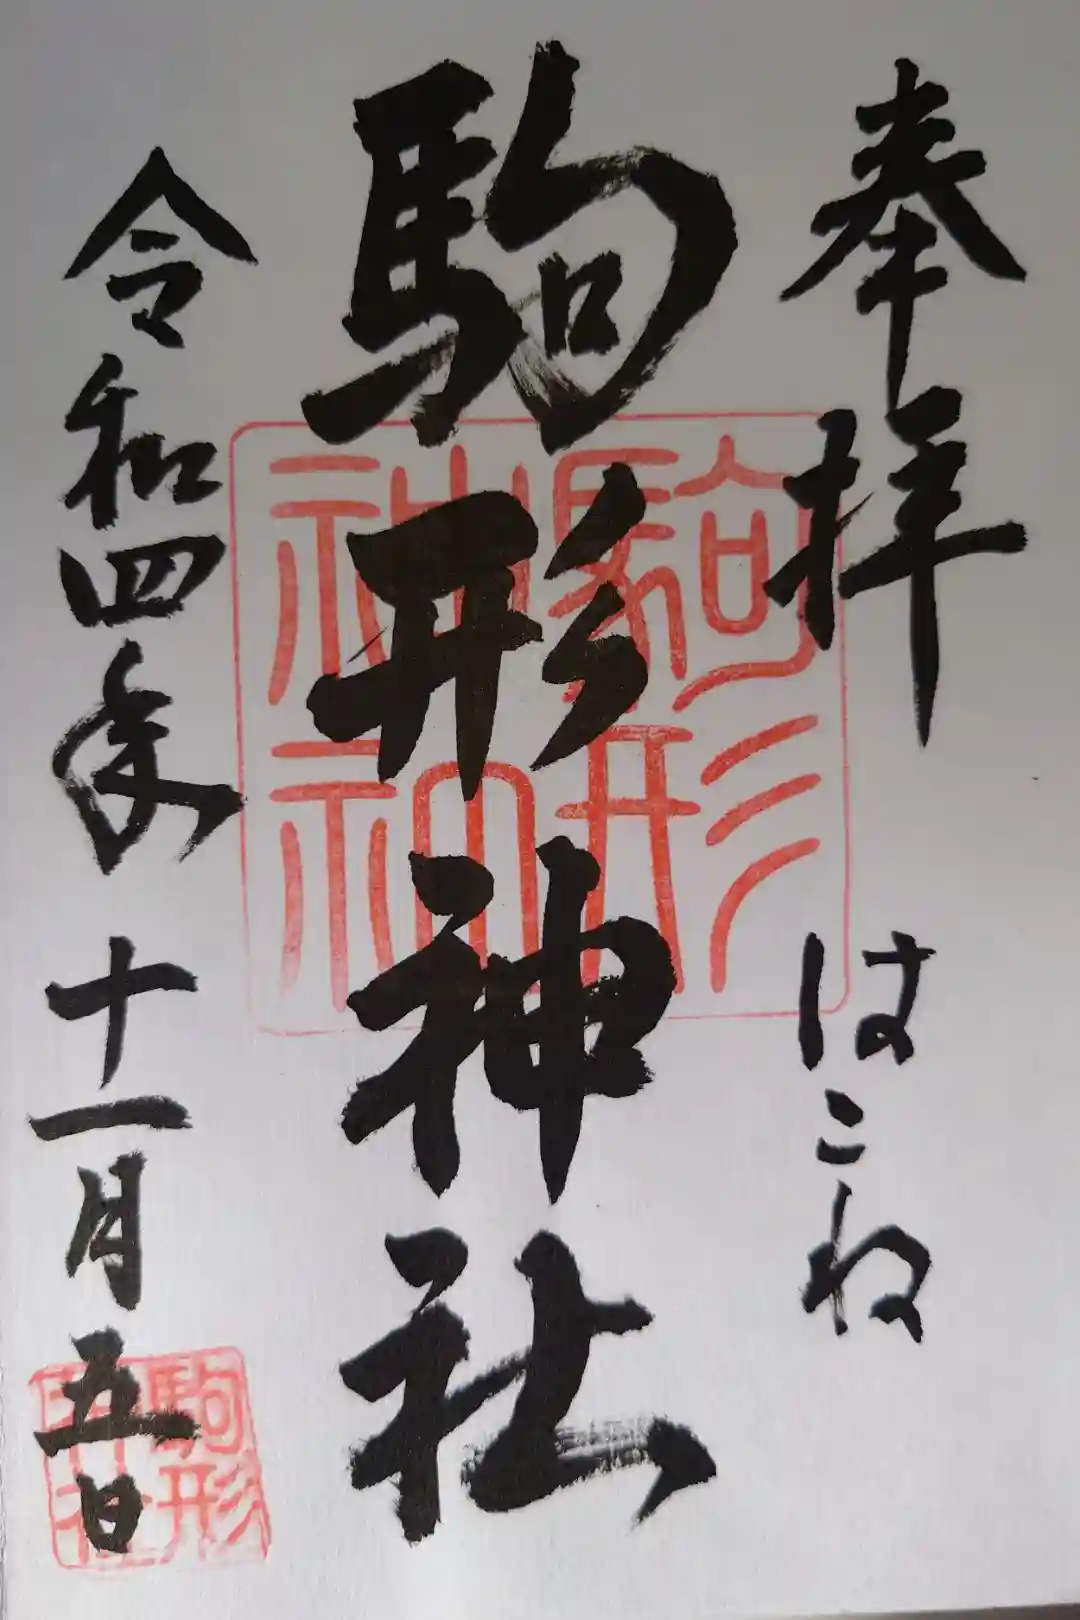 奉拝 はこね
駒形神社
令和四年 十一月五日
駒形
神社